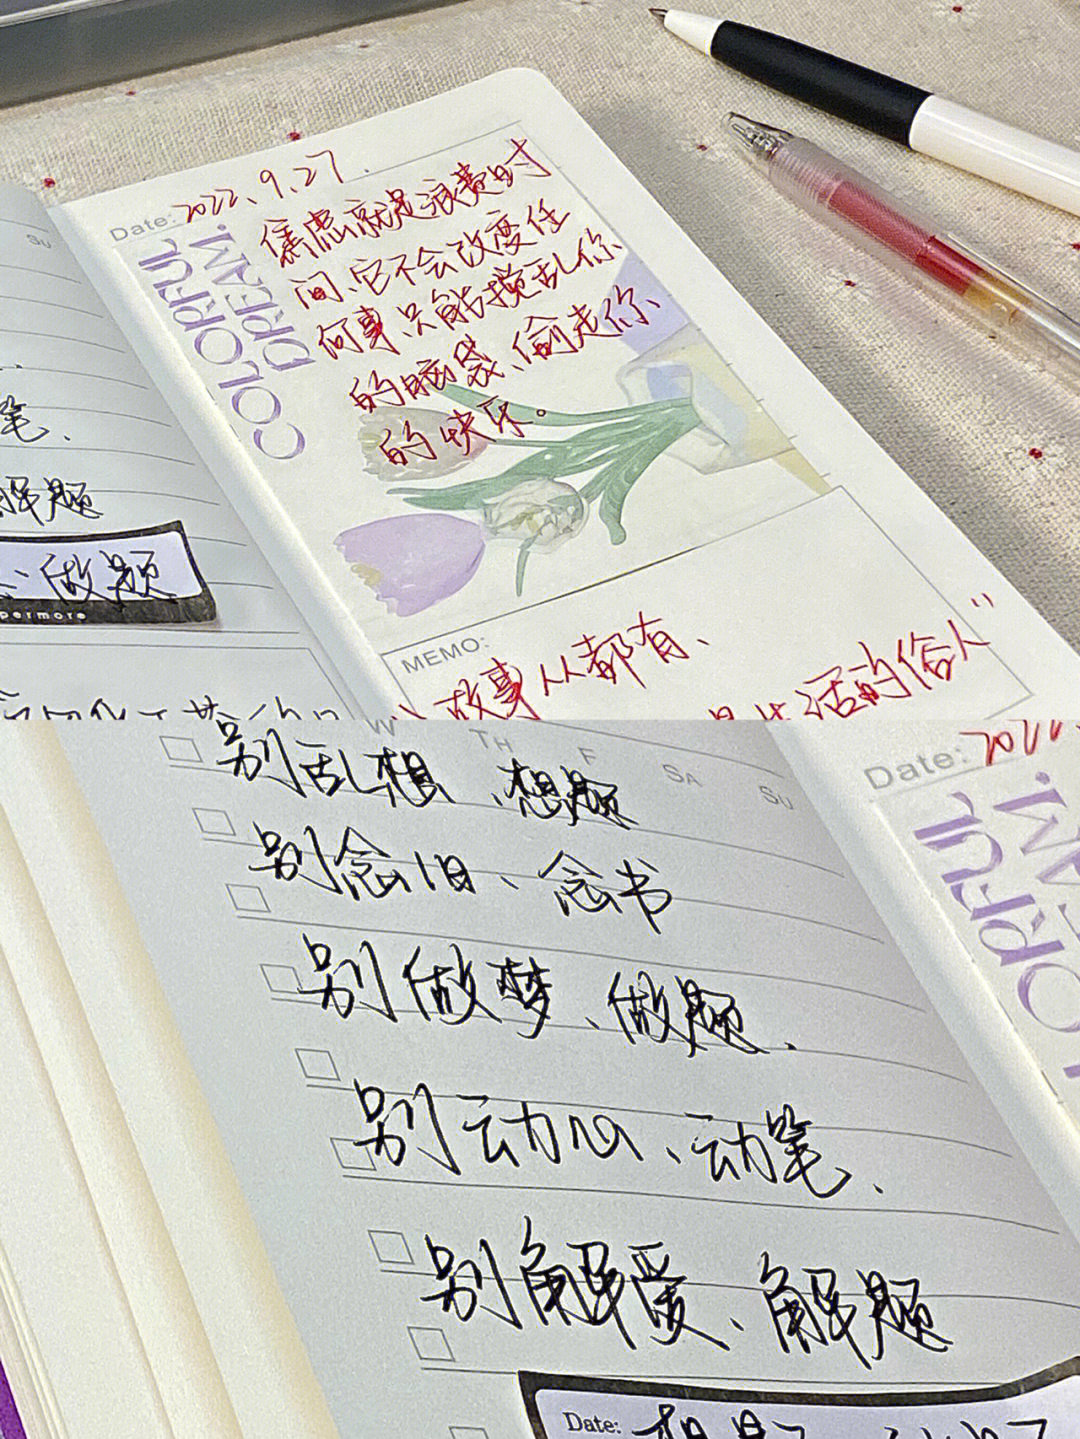 Date: 2022.9.27.
COLORFUL
DREAM.
焦虑就是浪费时
间、它不会改变任
何事只能搅乱你
的脑袋、偷走你
的快乐。
SU
笔.
解题
做题
MEMO:
故事人人都有、
生活的俗人”
W TH F SA SU
别乱想、想题
别念旧、念书
别做梦、做题.
别动心、动笔.
别解爱、解题
Date:
Date: 2022